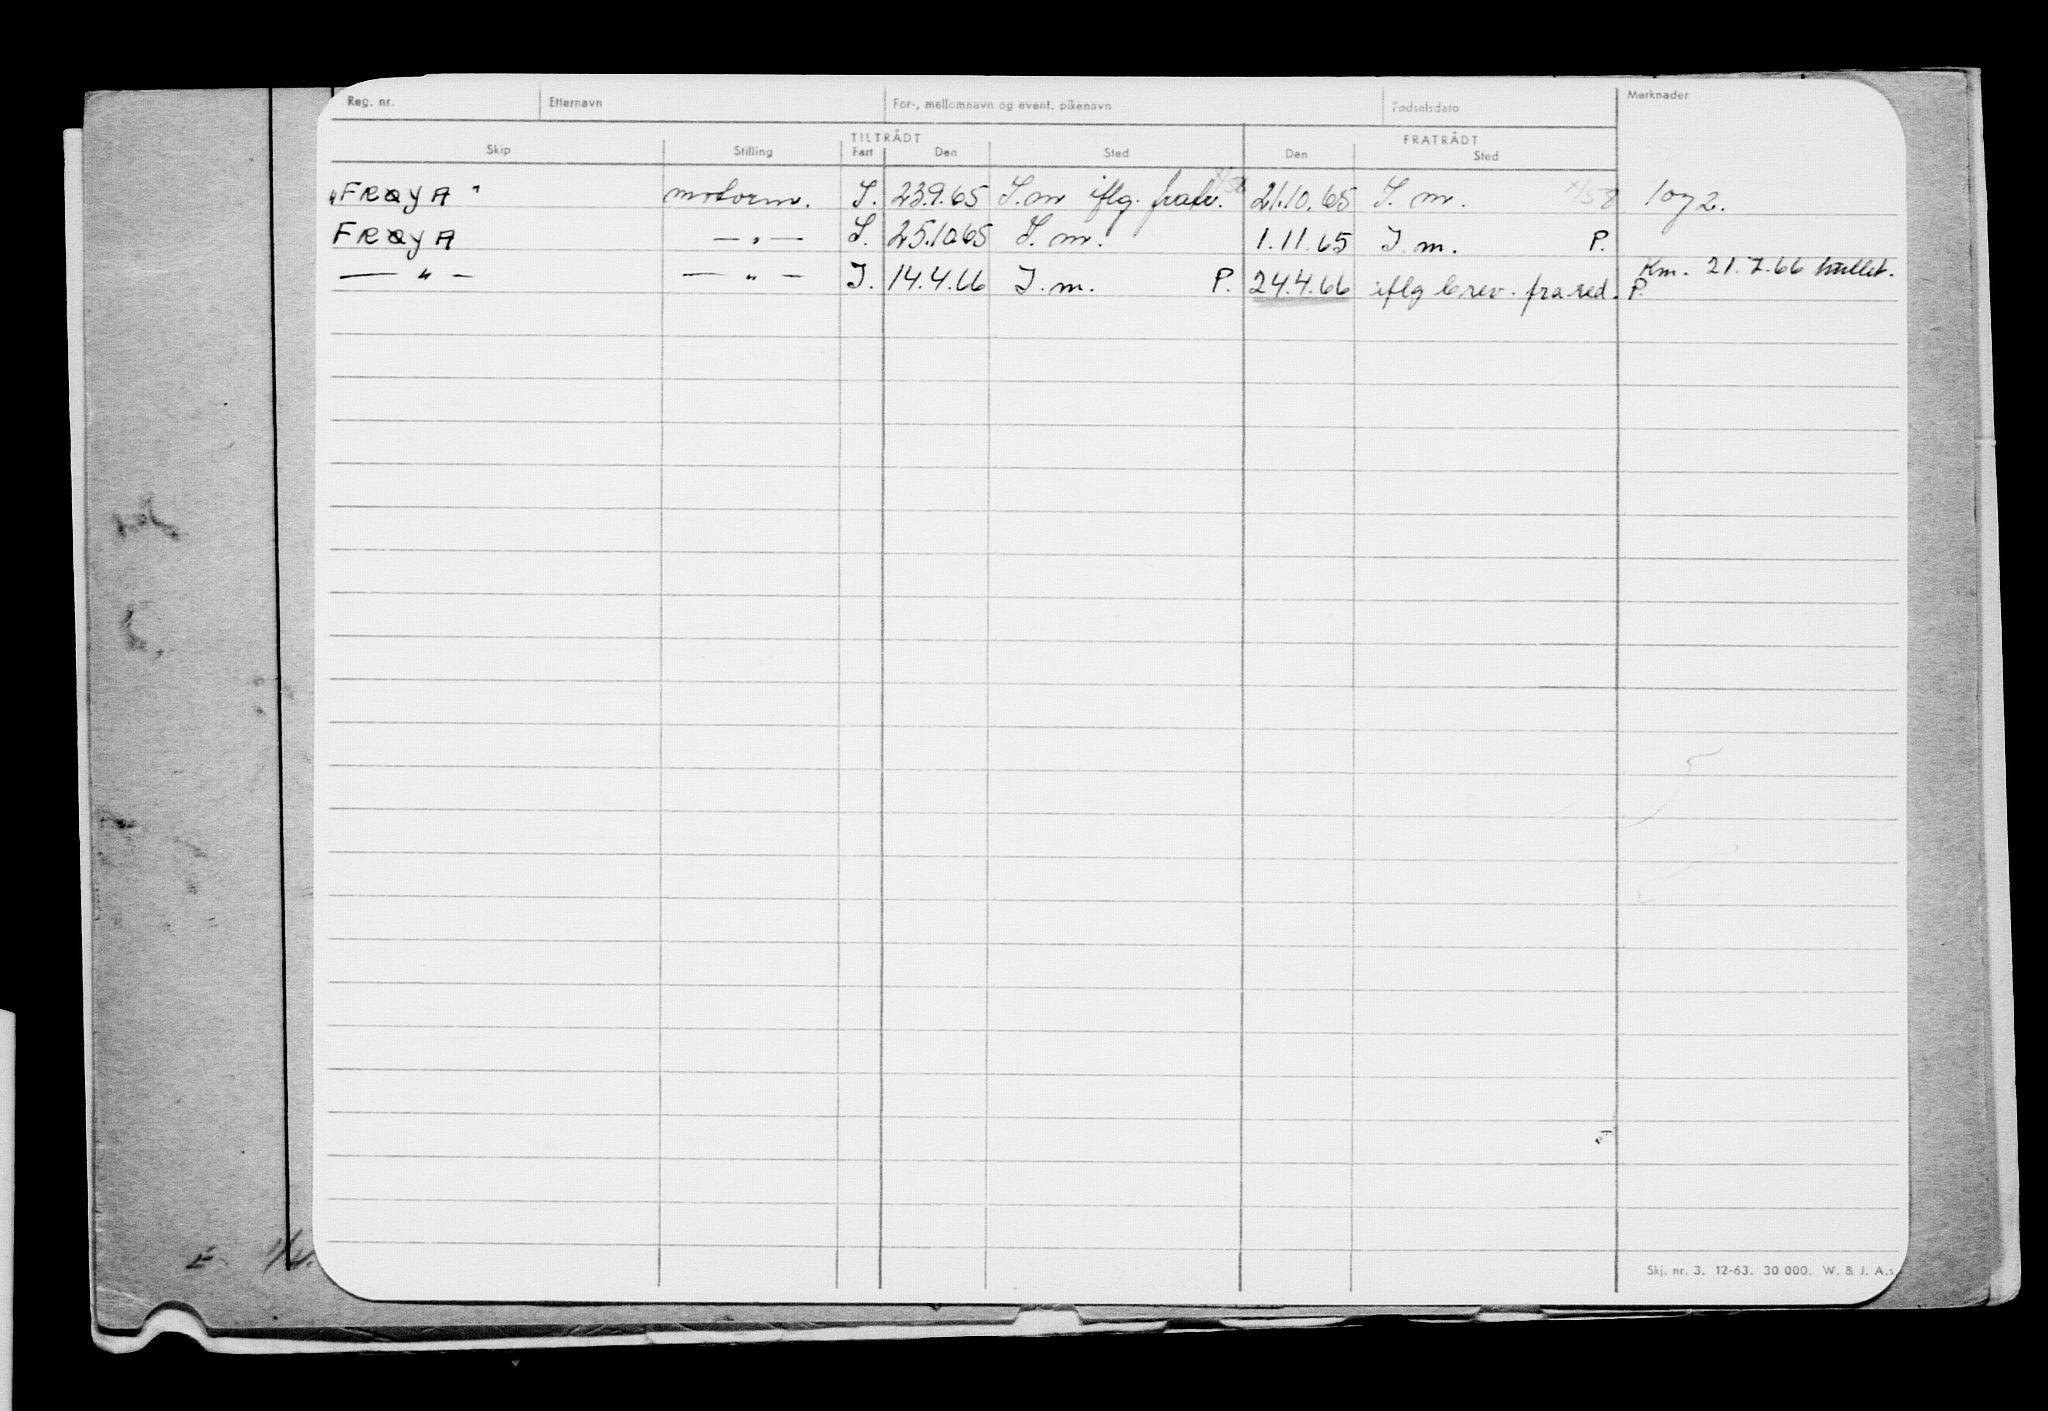 Reg. nr. Etternavn For-, mellomnavn og event. pikenavn Fødselsdato Merknader
TILTRÅDT FRATRÅDT
Skip Stilling Fart Den Sted Den Sted
"FRØYA" motorm. I. 23.9.65 I.m iflg. fratr. 21.10.65 I. m. 1 og 2.
FRØYA — " — I. 25.10.65 I. m. 1.11.65 I. m. P.
— " — — " — I. 14.4.66 I. m. P. 24.4.66 iflg brev. fra red. P.
Km. 21.7.66 hullet.
Skj. nr. 3. 12-63. 30 000. W. & J. A.s.